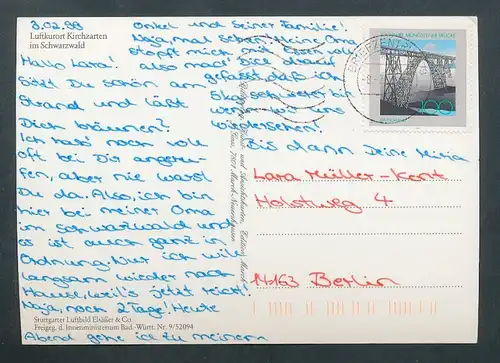 3.02.98
Luftkurort Kirchzarten
im Schwarzwald
Hallo Lara!
Sitzt Du schön am
Strand und läßt
Dich bräunen?
Ich hab' noch voll
oft bei Dir angeru-
fen, aber nie warst
Du da. Also, ich bin
hier bei meiner Oma
im Schwarzwald und
es ist auch ganz in
Ordnung. Nur ich will
langsam wieder nach
Hause, weil's jetzt reicht!
Naja, noch 2 Tage! Heute
Abend gehe ich zu meinem
Onkel und seiner Familie!
Naja, mal schau'n. Meine Oma
stopft mich mit Essen voll
also mach' Dich darauf
gefasst, daß ich
5kg schwerer bin
wenn wir uns
wiedersehen!
Bis dann Deine
Lara Müller-Kent
Holstweg 4
14163 Berlin
Stuttgarter Luftbild Elsäßer & Co.
Freigeg. d. Innenministerium Bad.-Württ. Nr. 9/52094
100